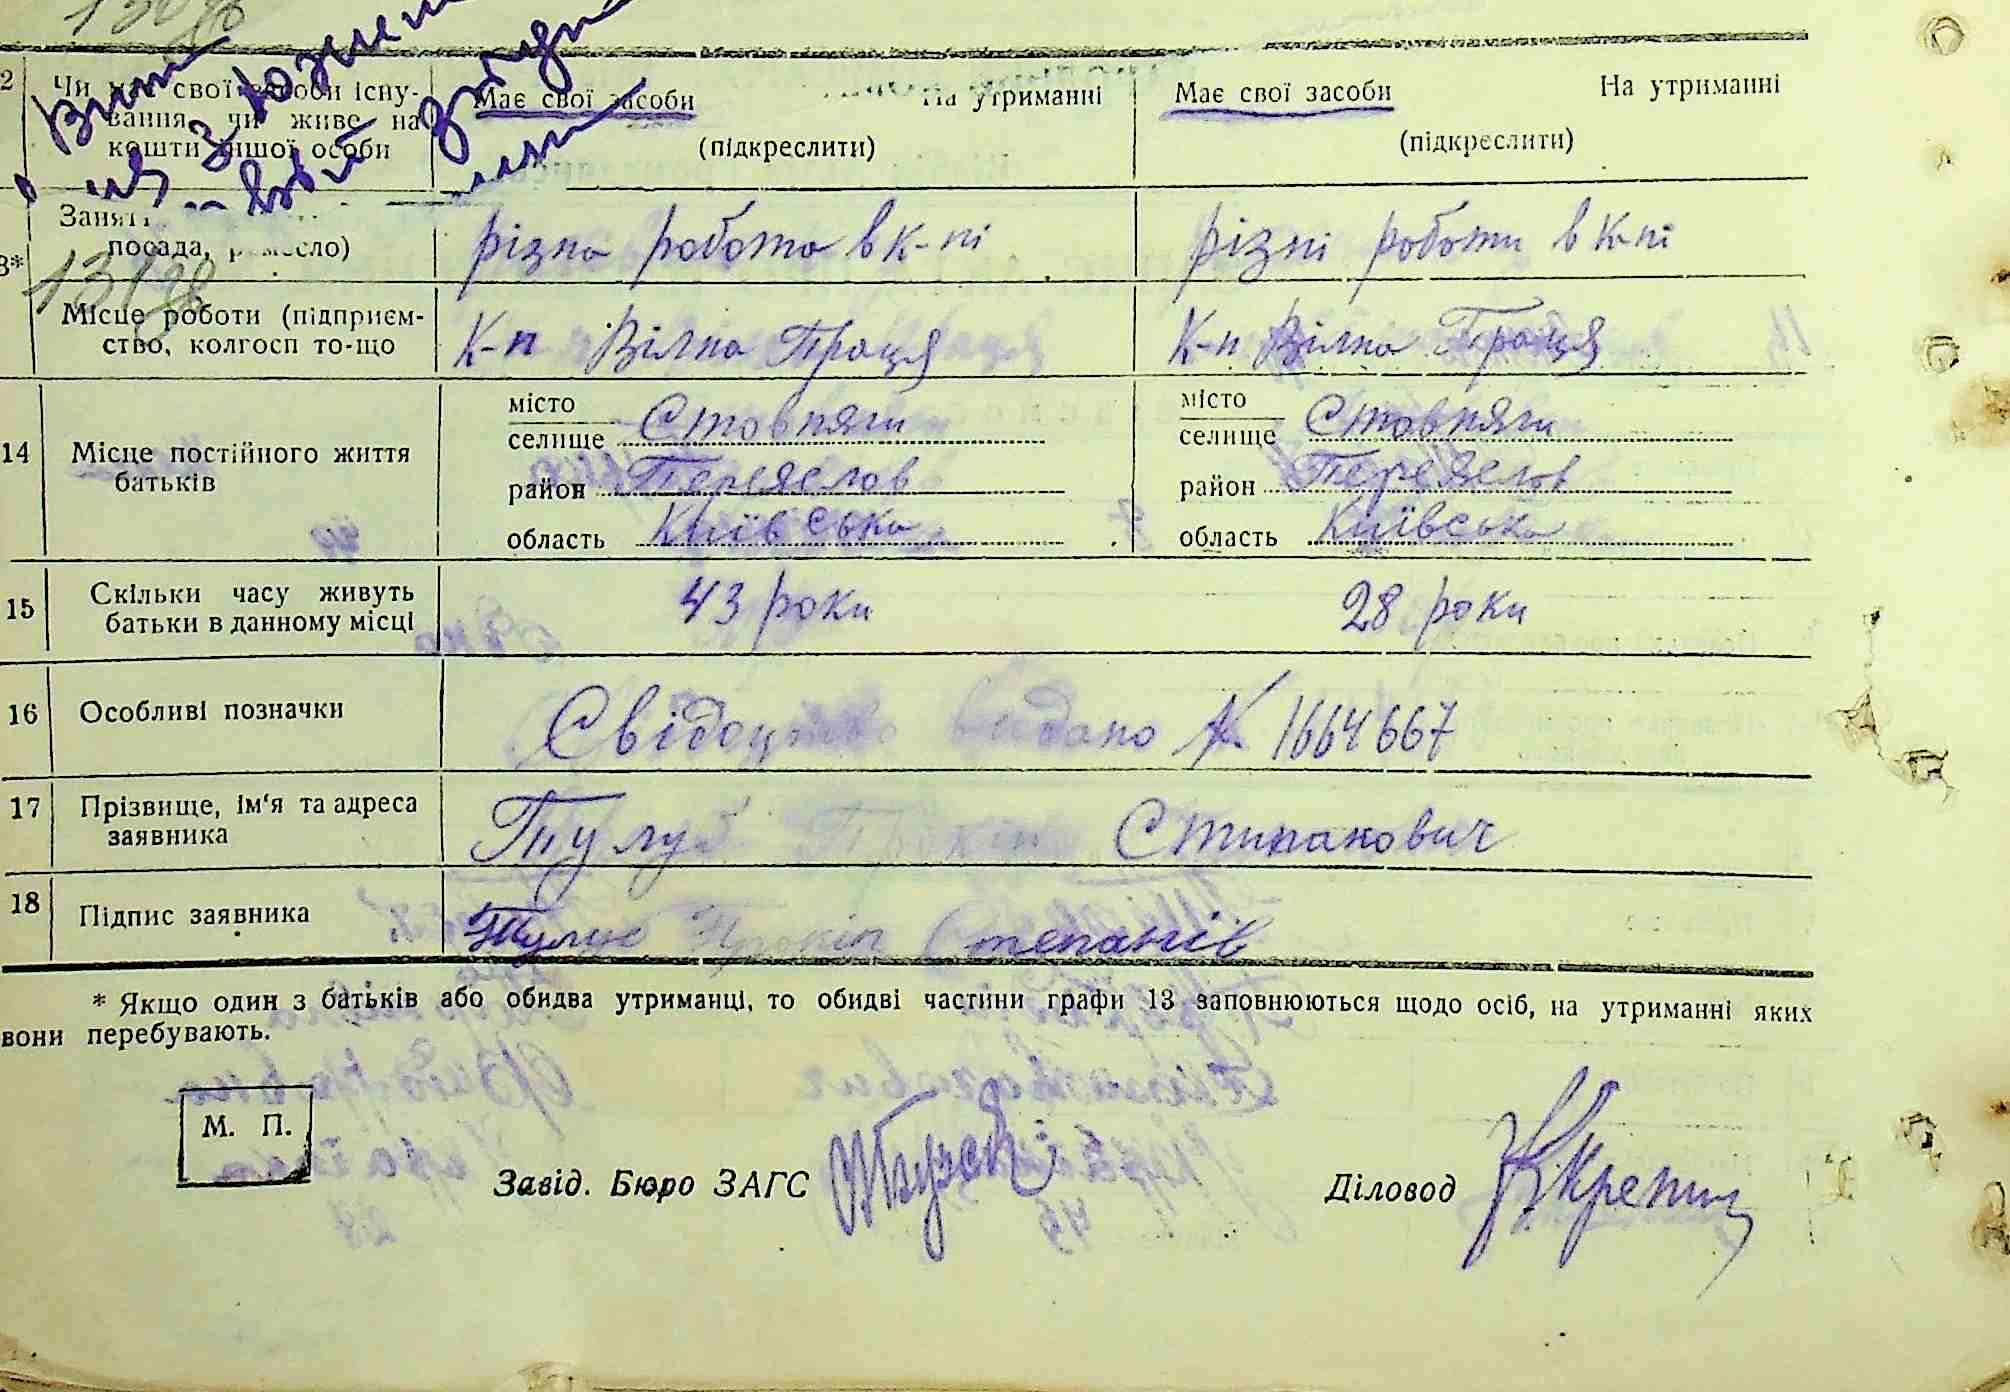 2 Чи має свої засоби існу- Має свої засоби На утриманні Має свої засоби На утриманні
вання чи живе на
кошти іншої особи (підкреслити) (підкреслити)
посада, ремесло) різна робота в к-пі різні роботи в к-пі
13*
Місце роботи (підприєм- К-п Вілна Праця К-п Вілна Праця
ство, колгосп то-що
14 Місце постійного життя батьків
місто
селище Стовпяги
район Переяслов
область Київська
місто
селище Стовпяги
район Переяслов
область Київська
15 Скільки часу живуть 43 роки 28 роки
батьки в данному місці
16 Особливі позначки Свідоцтво видано № 1664667
17 Прізвище, ім'я та адреса Тулуб Прокіп Стипанович
заявника
18 Підпис заявника Тулуб Прокіп Степанів
* Якщо один з батьків або обидва утриманці, то обидві частини графи 13 заповнюються щодо осіб, на утриманні яких
вони перебувають.
М. П.
Завід. Бюро ЗАГС
Діловод